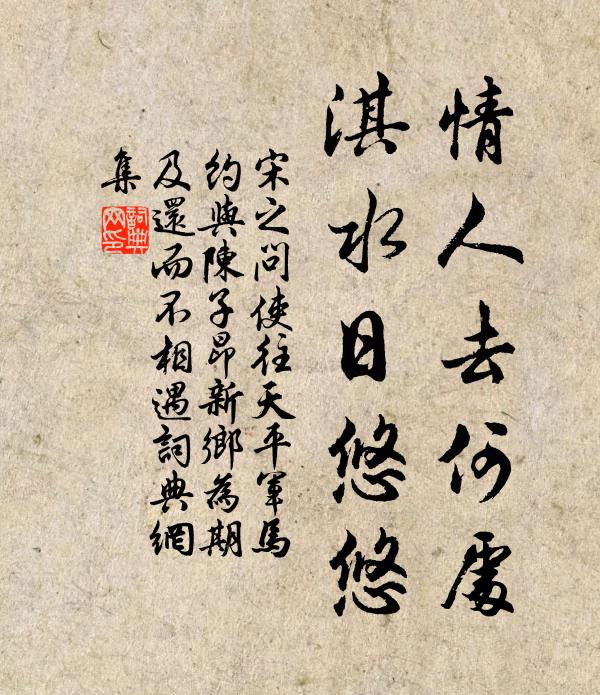 情人去何處
淇水日悠悠
宋之問使往天平軍馬
約與陳子昂新鄉為期
及還而不相遇詞典網
集
詞典
网印